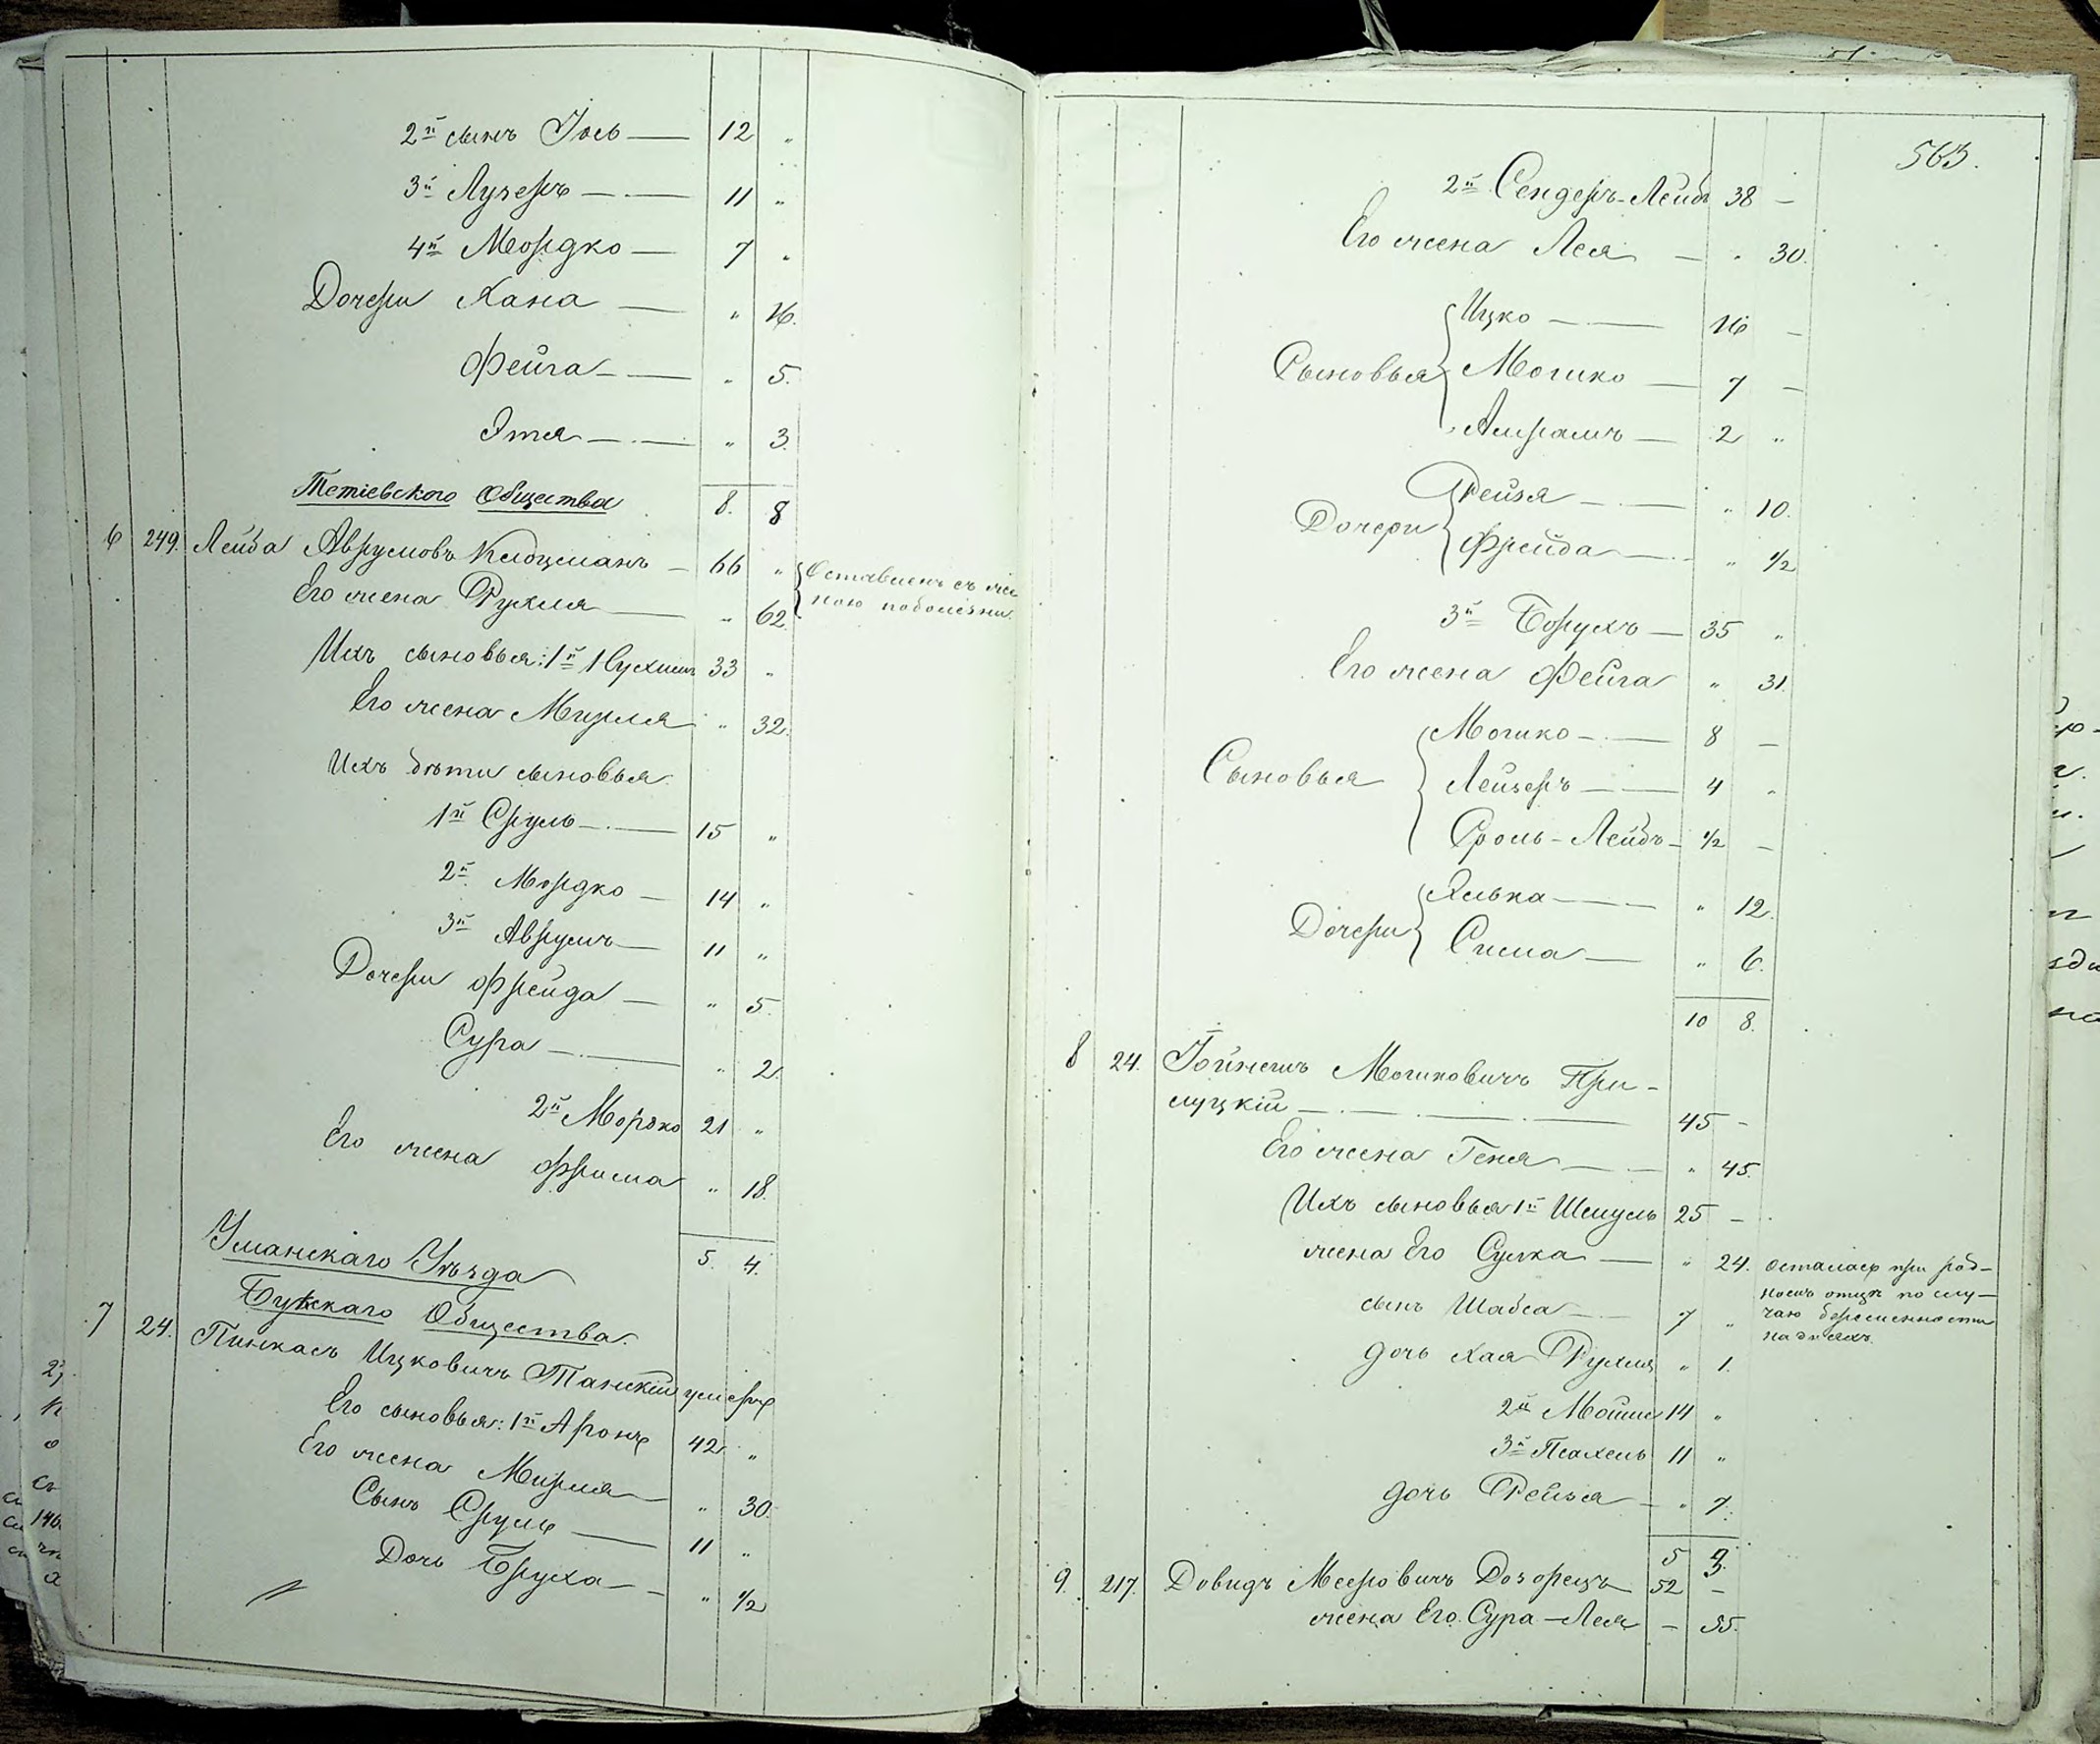 2й сынъ Іось — 12 „
3й Лузеръ — 11 „
4й Мордко — 7 „
Дочери Хана — „ 16.
Фейга — „ 5.
Этя — „ 3.
8. 8
Тетіевскаго Общества
6 249. Лейба Аврумовъ Клоцманъ — 66 „ Оставленъ съ же-
Его жена Рухля — „ 62. ною по болѣзни.
Ихъ сыновья: 1й Нухимъ 33 „
Его жена Мирля „ 32.
Ихъ дѣти сыновья
1й Сруль — 15 „
2й Мордко — 14 „
3й Аврумъ — 11 „
Дочери Фрейда — „ 5.
Сура — „ 2.
2й Мордко 21 „
Его жена Фрима „ 18.
5. 4.
Уманскаго Уѣзда
Букскаго Общества.
7 24. Пинкасъ Ицковичъ Танскій умеръ
Его сыновья: 1й Аронъ 42 „
Его жена Мирля — „ 30.
Сынъ Сруль — 11 „
Дочь Бруха — „ 1/2
563.
2й Сендеръ-Лейбъ 38 —
Его жена Лея — „ 30.
Ицко — 16 —
Сыновья Мошко — 7 —
Амрамъ — 2 „
Рейзя — „ 10.
Дочери Фрейда — „ 1/2
3й Борухъ — 35 „
Его жена Фейга „ 31.
Мошко — 8 —
Сыновья Лейзеръ — 4 „
Сроль-Лейбъ — 1/2 —
Хивка — „ 12.
Дочери Сима — „ 6.
10 8.
8 24. Іойнемъ Мошковичъ При-
луцкій — 45 —
Его жена Геня — „ 45.
Ихъ сыновья 1й Шмуль 25 —
жена Его Сурка — „ 24. осталась при род-
номъ отцѣ по слу-
сынъ Шабса — 7 „ чаю беременности
на дняхъ.
дочь Хая Рухля „ 1.
2й Мошко 14 „
3й Псахель 11 „
дочь Рейзя — „ 7.
5 3.
9. 217. Довидъ Мееровичъ Дозорецъ 52 —
жена Его Сура-Лея — 55.